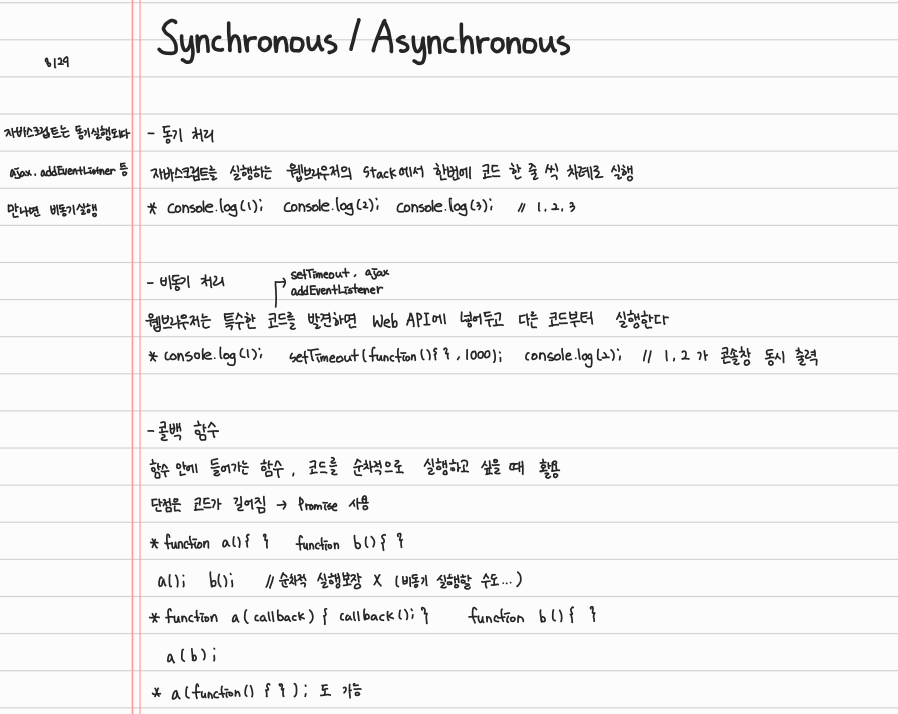 Synchronous / Asynchronous
8/29
자바스크립트는 동기실행되다
ajax, addEventListner 등
만나면 비동기실행
- 동기 처리
자바스크립트를 실행하는 웹브라우저의 Stack에서 한번에 코드 한 줄 씩 차례로 실행
* console.log(1); console.log(2); console.log(3); // 1, 2, 3
- 비동기 처리
setTimeout, ajax
addEventListener
웹브라우저는 특수한 코드를 발견하면 Web API에 넣어두고 다른 코드부터 실행한다
* console.log(1); setTimeout(function(){ }, 1000); console.log(2); // 1, 2 가 콘솔창 동시 출력
- 콜백 함수
함수 안에 들어가는 함수, 코드를 순차적으로 실행하고 싶을 때 활용
단점은 코드가 길어짐 → Promise 사용
* function a(){ } function b(){ }
a(); b(); // 순차적 실행보장 X (비동기 실행할 수도...)
* function a(callback) { callback(); } function b(){ }
a(b);
* a(function() { } ); 도 가능